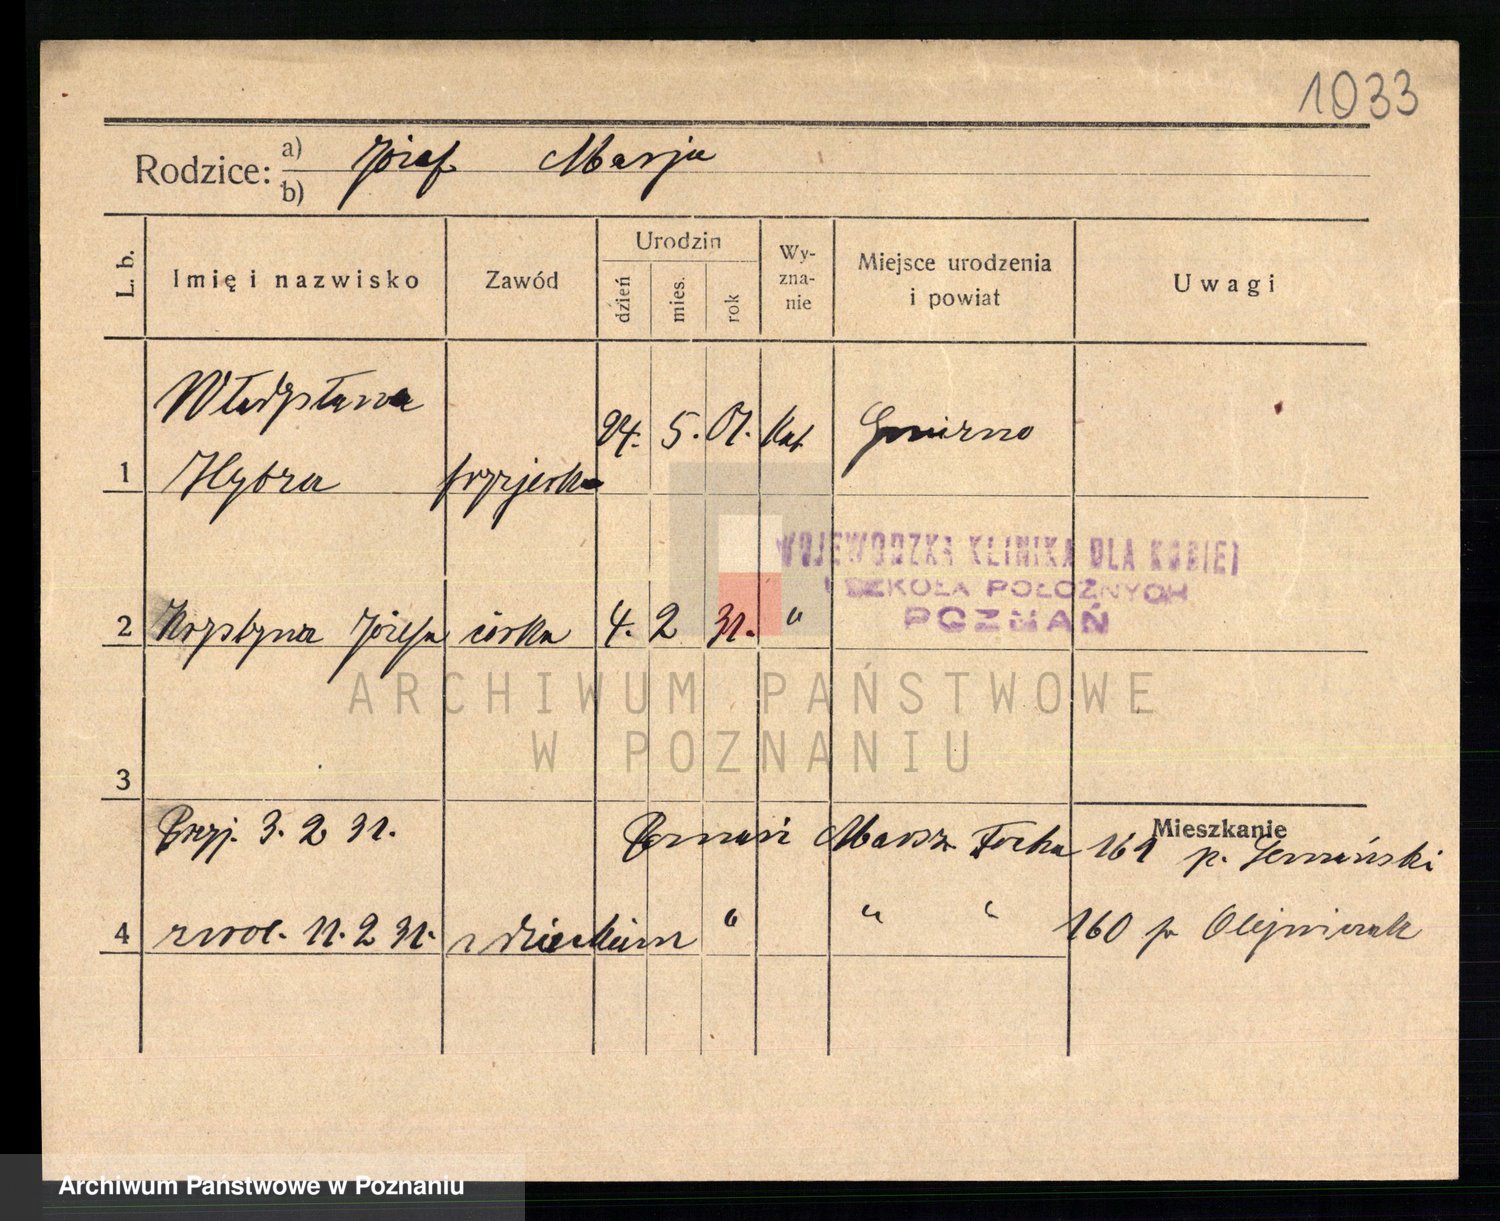 1033
Rodzice: a) Józef Marja
b)
L. b. Imię i nazwisko Zawód Urodzin dzień mies. rok Wy-zna-nie Miejsce urodzenia i powiat Uwagi
Władysława
24. 5. 07. kat
1 Hybza fryzjerka
WOJEWÓDZKA KLINIKA DLA KOBIET
I SZKOŁA POŁOŻNYCH
POZNAŃ
2 Krystyna Józefa córka 4. 2 31. "
ARCHIWUM PAŃSTWOWE
W POZNANIU
3
Mieszkanie
Przyj. 3. 2 31. Poznań Marsz. Focha 161 p.
4 zwol. 11. 2 31. z dzieckiem " " " 160 p Olejniczak
Archiwum Państwowe w Poznaniu